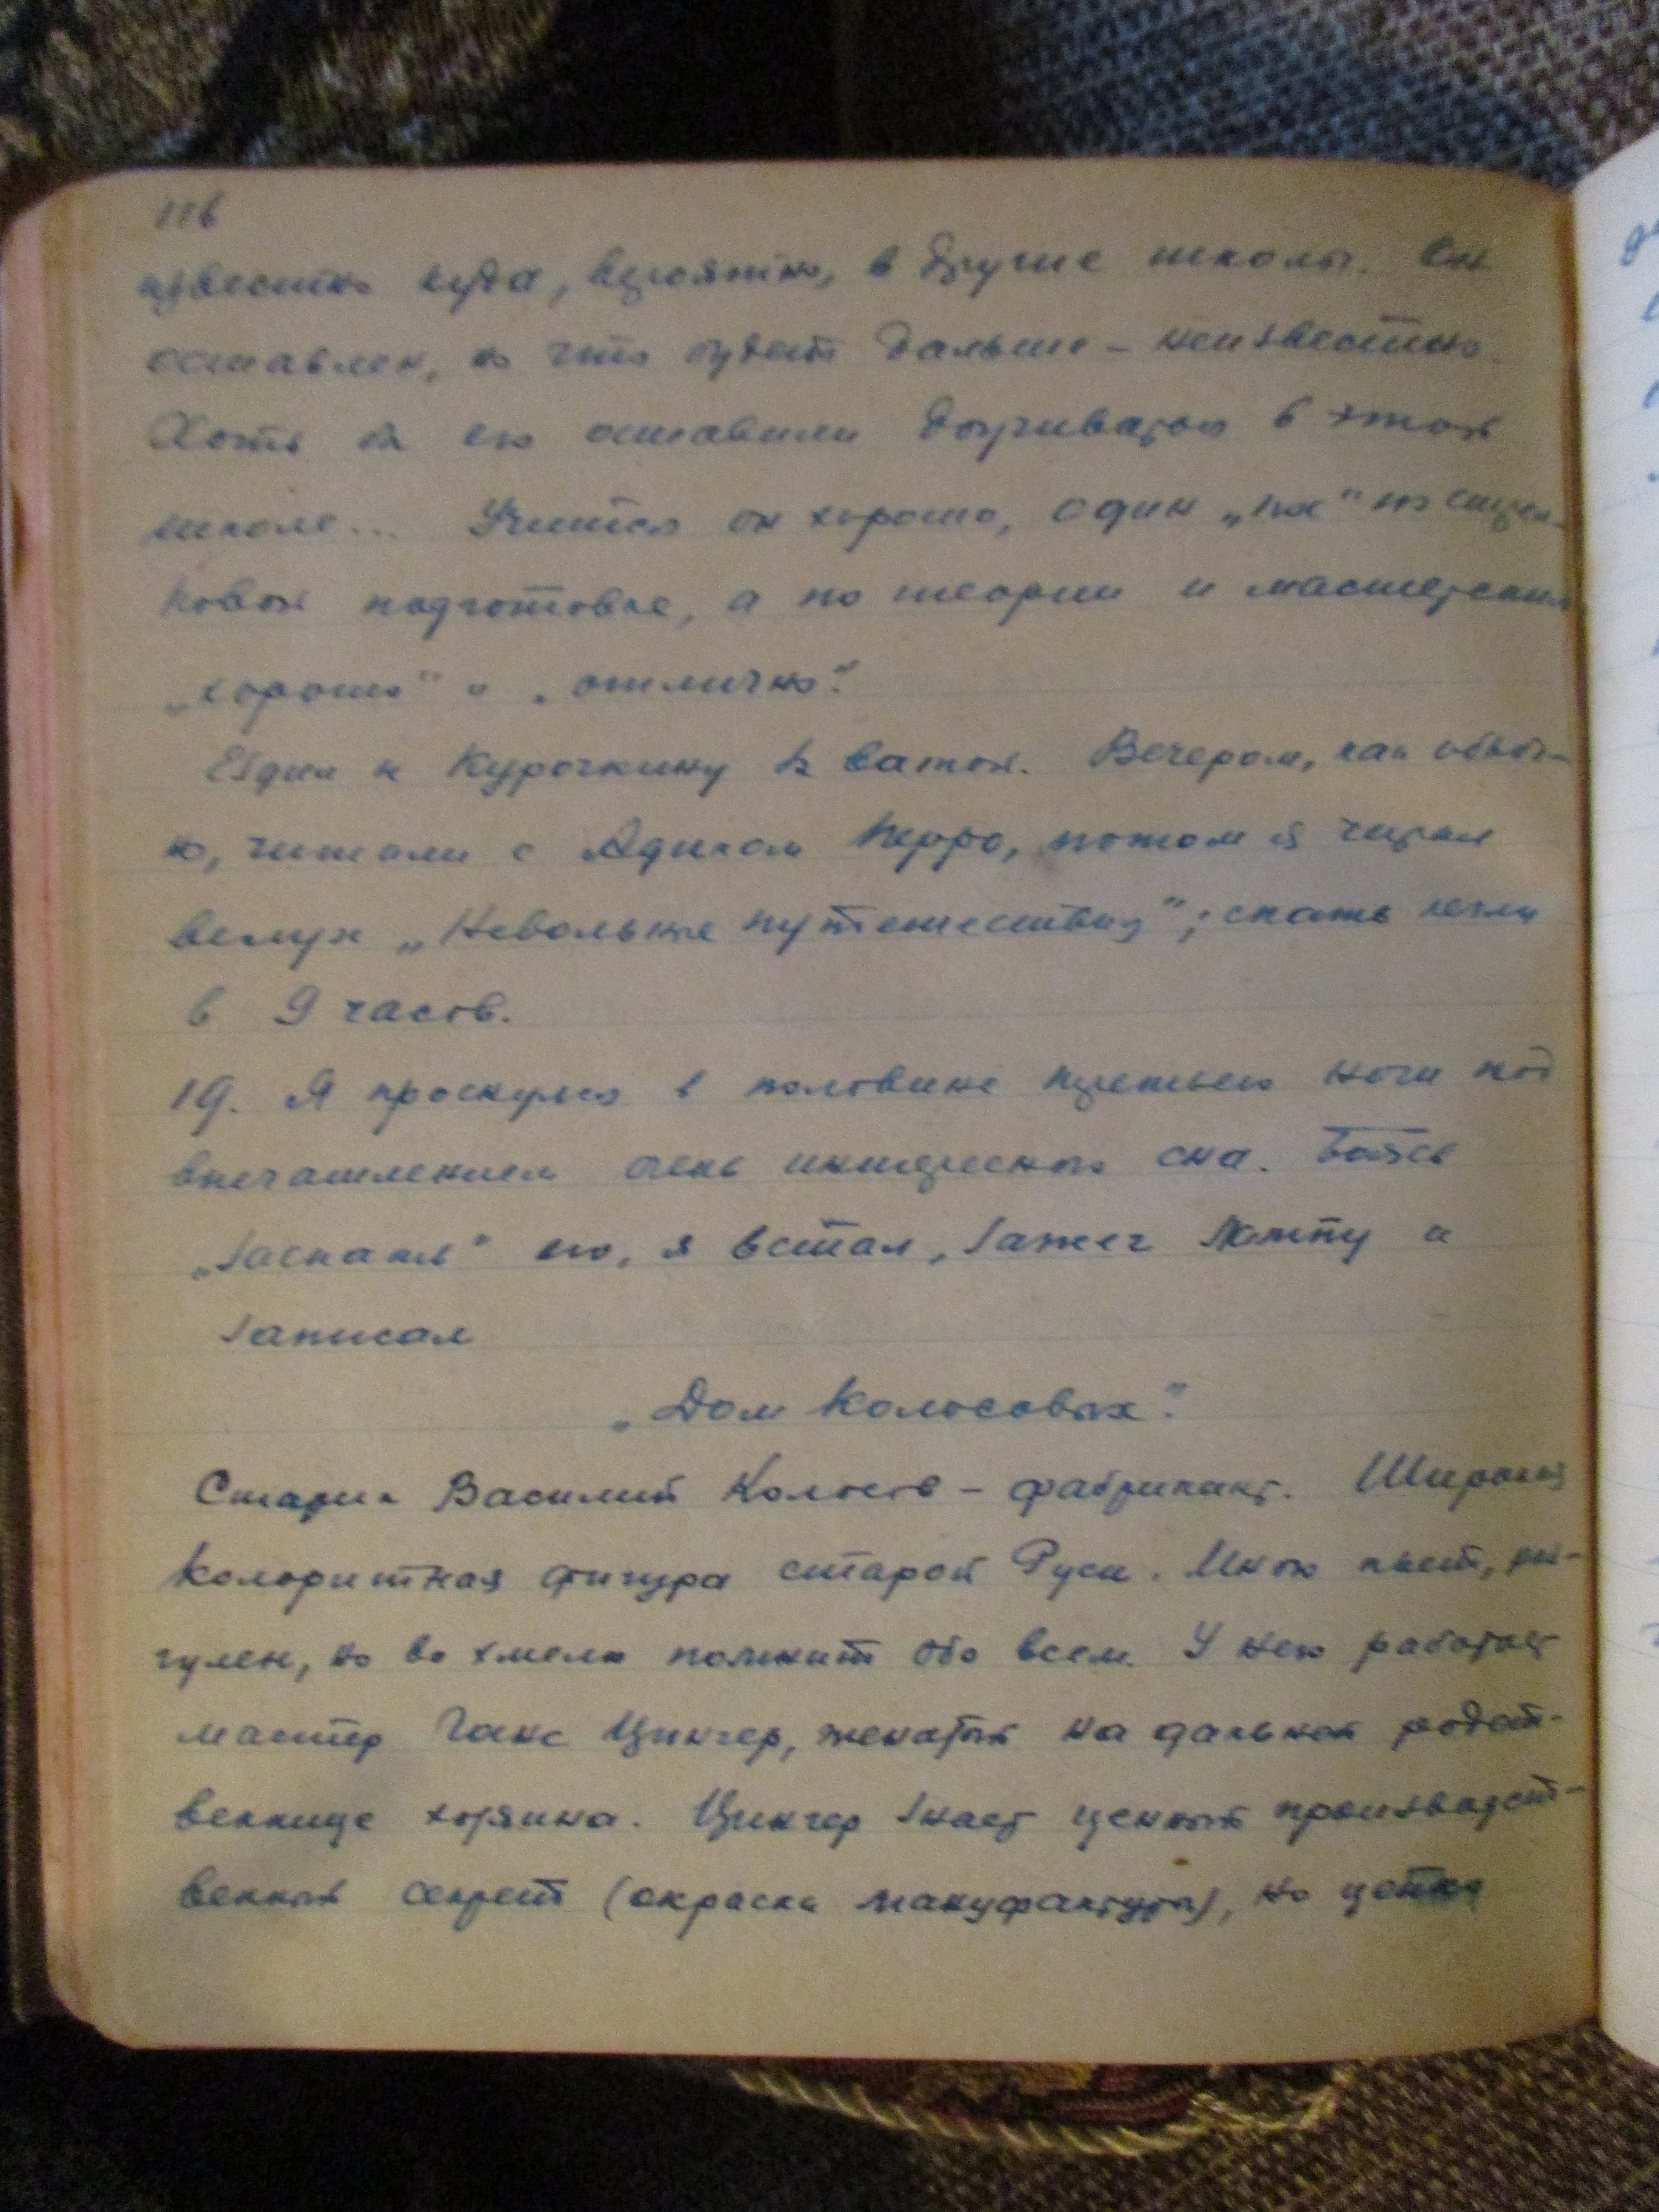 116
известно куда, вероятно, в другие школы. Он
оставлен, но что будет дальше – неизвестно.
Хоть бы его оставили доучиваться в этой
школе... Учится он хорошо, один „пос" по
ковой подготовке, а по теории и мастерским
„хорошо" и „отлично".
Ездил к Курочкину за ватой. Вечером, как обыч-
но, читали с Адиком Перро, потом я читал
вслух „Невольные путешествия"; спать легли
в 9 часов.
19. Я проснулся в половине третьего ночи под
впечатлением очень интересного сна. Боясь
„заспать" его, я встал, зажег лампу и
записал
„Дом Колосовых".
Старик Василий Колосов – фабрикант. Широкая
колоритная фигура старой Руси. Много пьет, раз-
гулен, но во хмелю помнит обо всем. У него работает
мастер Ганс Цингер, женатый на дальней родст-
веннице хозяина. Цингер знает ценный производст-
венный секрет (окраска мануфактуры), но